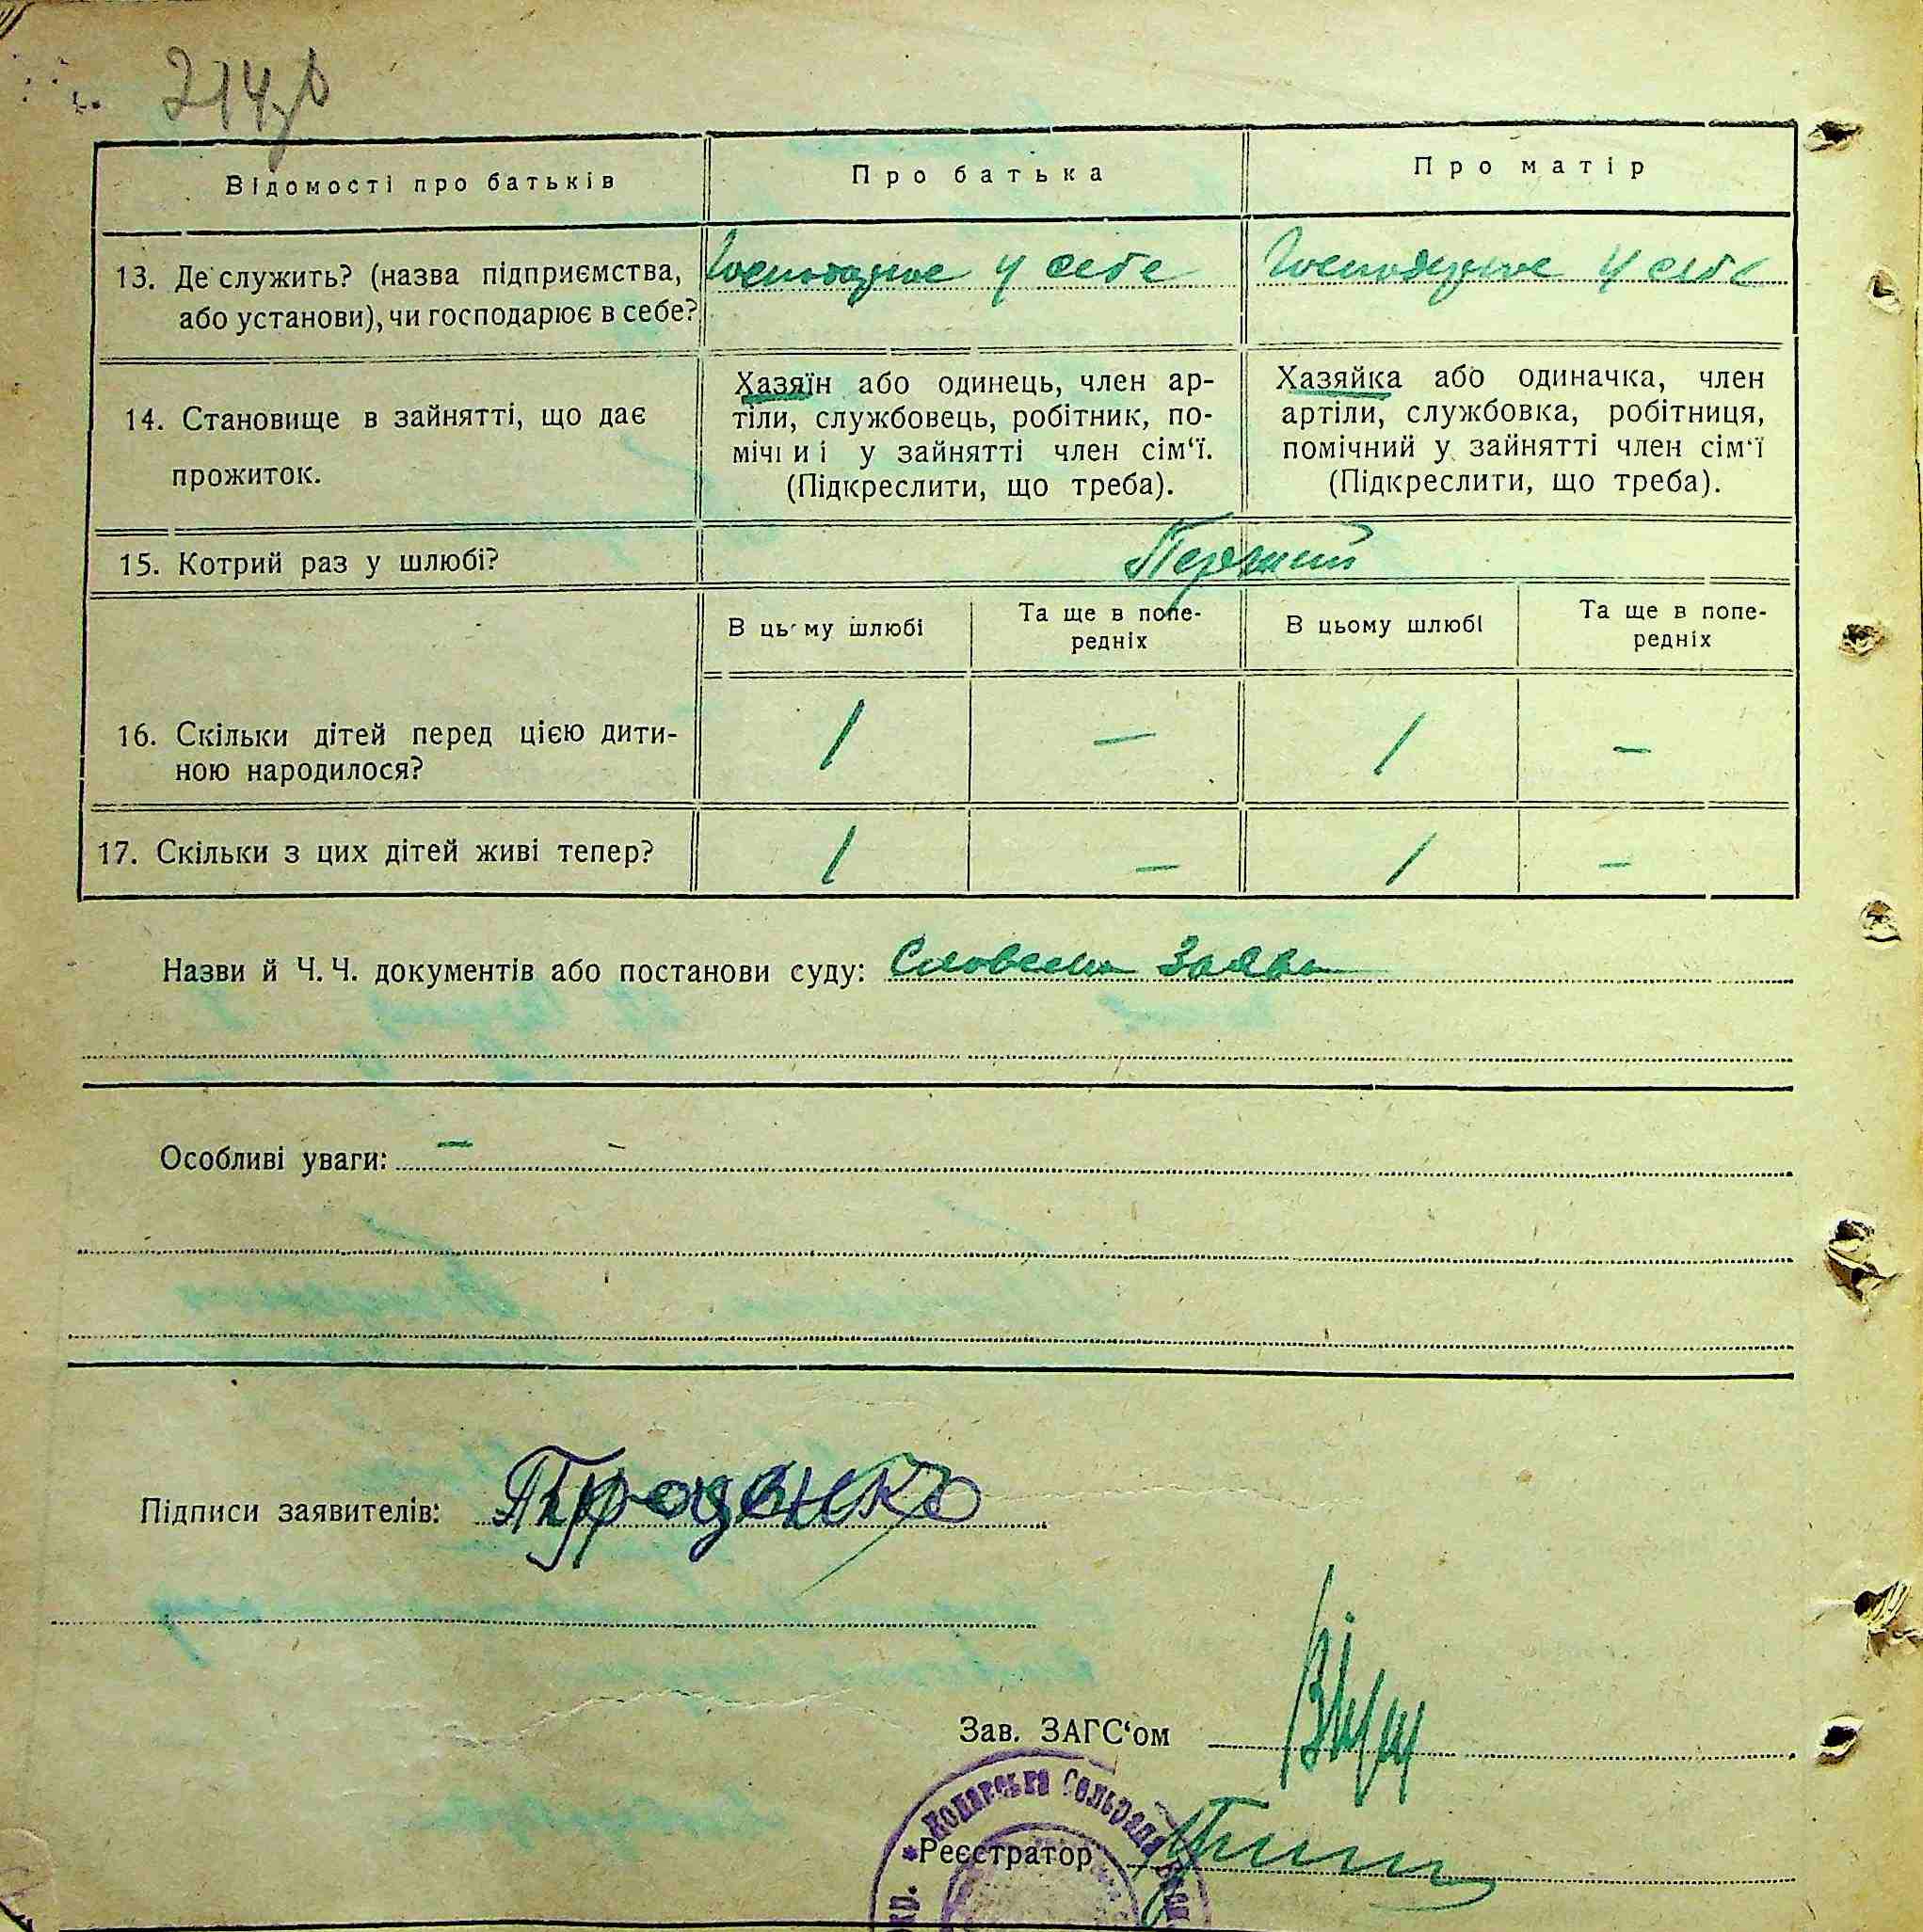 214
Відомості про батьків
Про батька
Про матір
13. Де служить? (назва підприємства,
або установи), чи господарює в себе?
Господарює у себе
Господарює у себе
14. Становище в зайнятті, що дає
прожиток.
Хазяїн або одинець, член ар-
тіли, службовець, робітник, по-
мічниі у зайнятті член сім‘ї.
(Підкреслити, що треба).
Хазяйка або одиначка, член
артіли, службовка, робітниця,
помічний у зайнятті член сім‘ї
(Підкреслити, що треба).
15. Котрий раз у шлюбі?
Перший
В цьому шлюбі
Та ще в попе-
редніх
В цьому шлюбі
Та ще в попе-
редніх
16. Скільки дітей перед цією дити-
ною народилося?
1 — 1 —
17. Скільки з цих дітей живі тепер?
1 — 1 —
Назви й Ч. Ч. документів або постанови суду: Словесна Заява
Особливі уваги: —
Підписи заявителів:
Зав. ЗАГС‘ом
Сельрада
Реєстратор